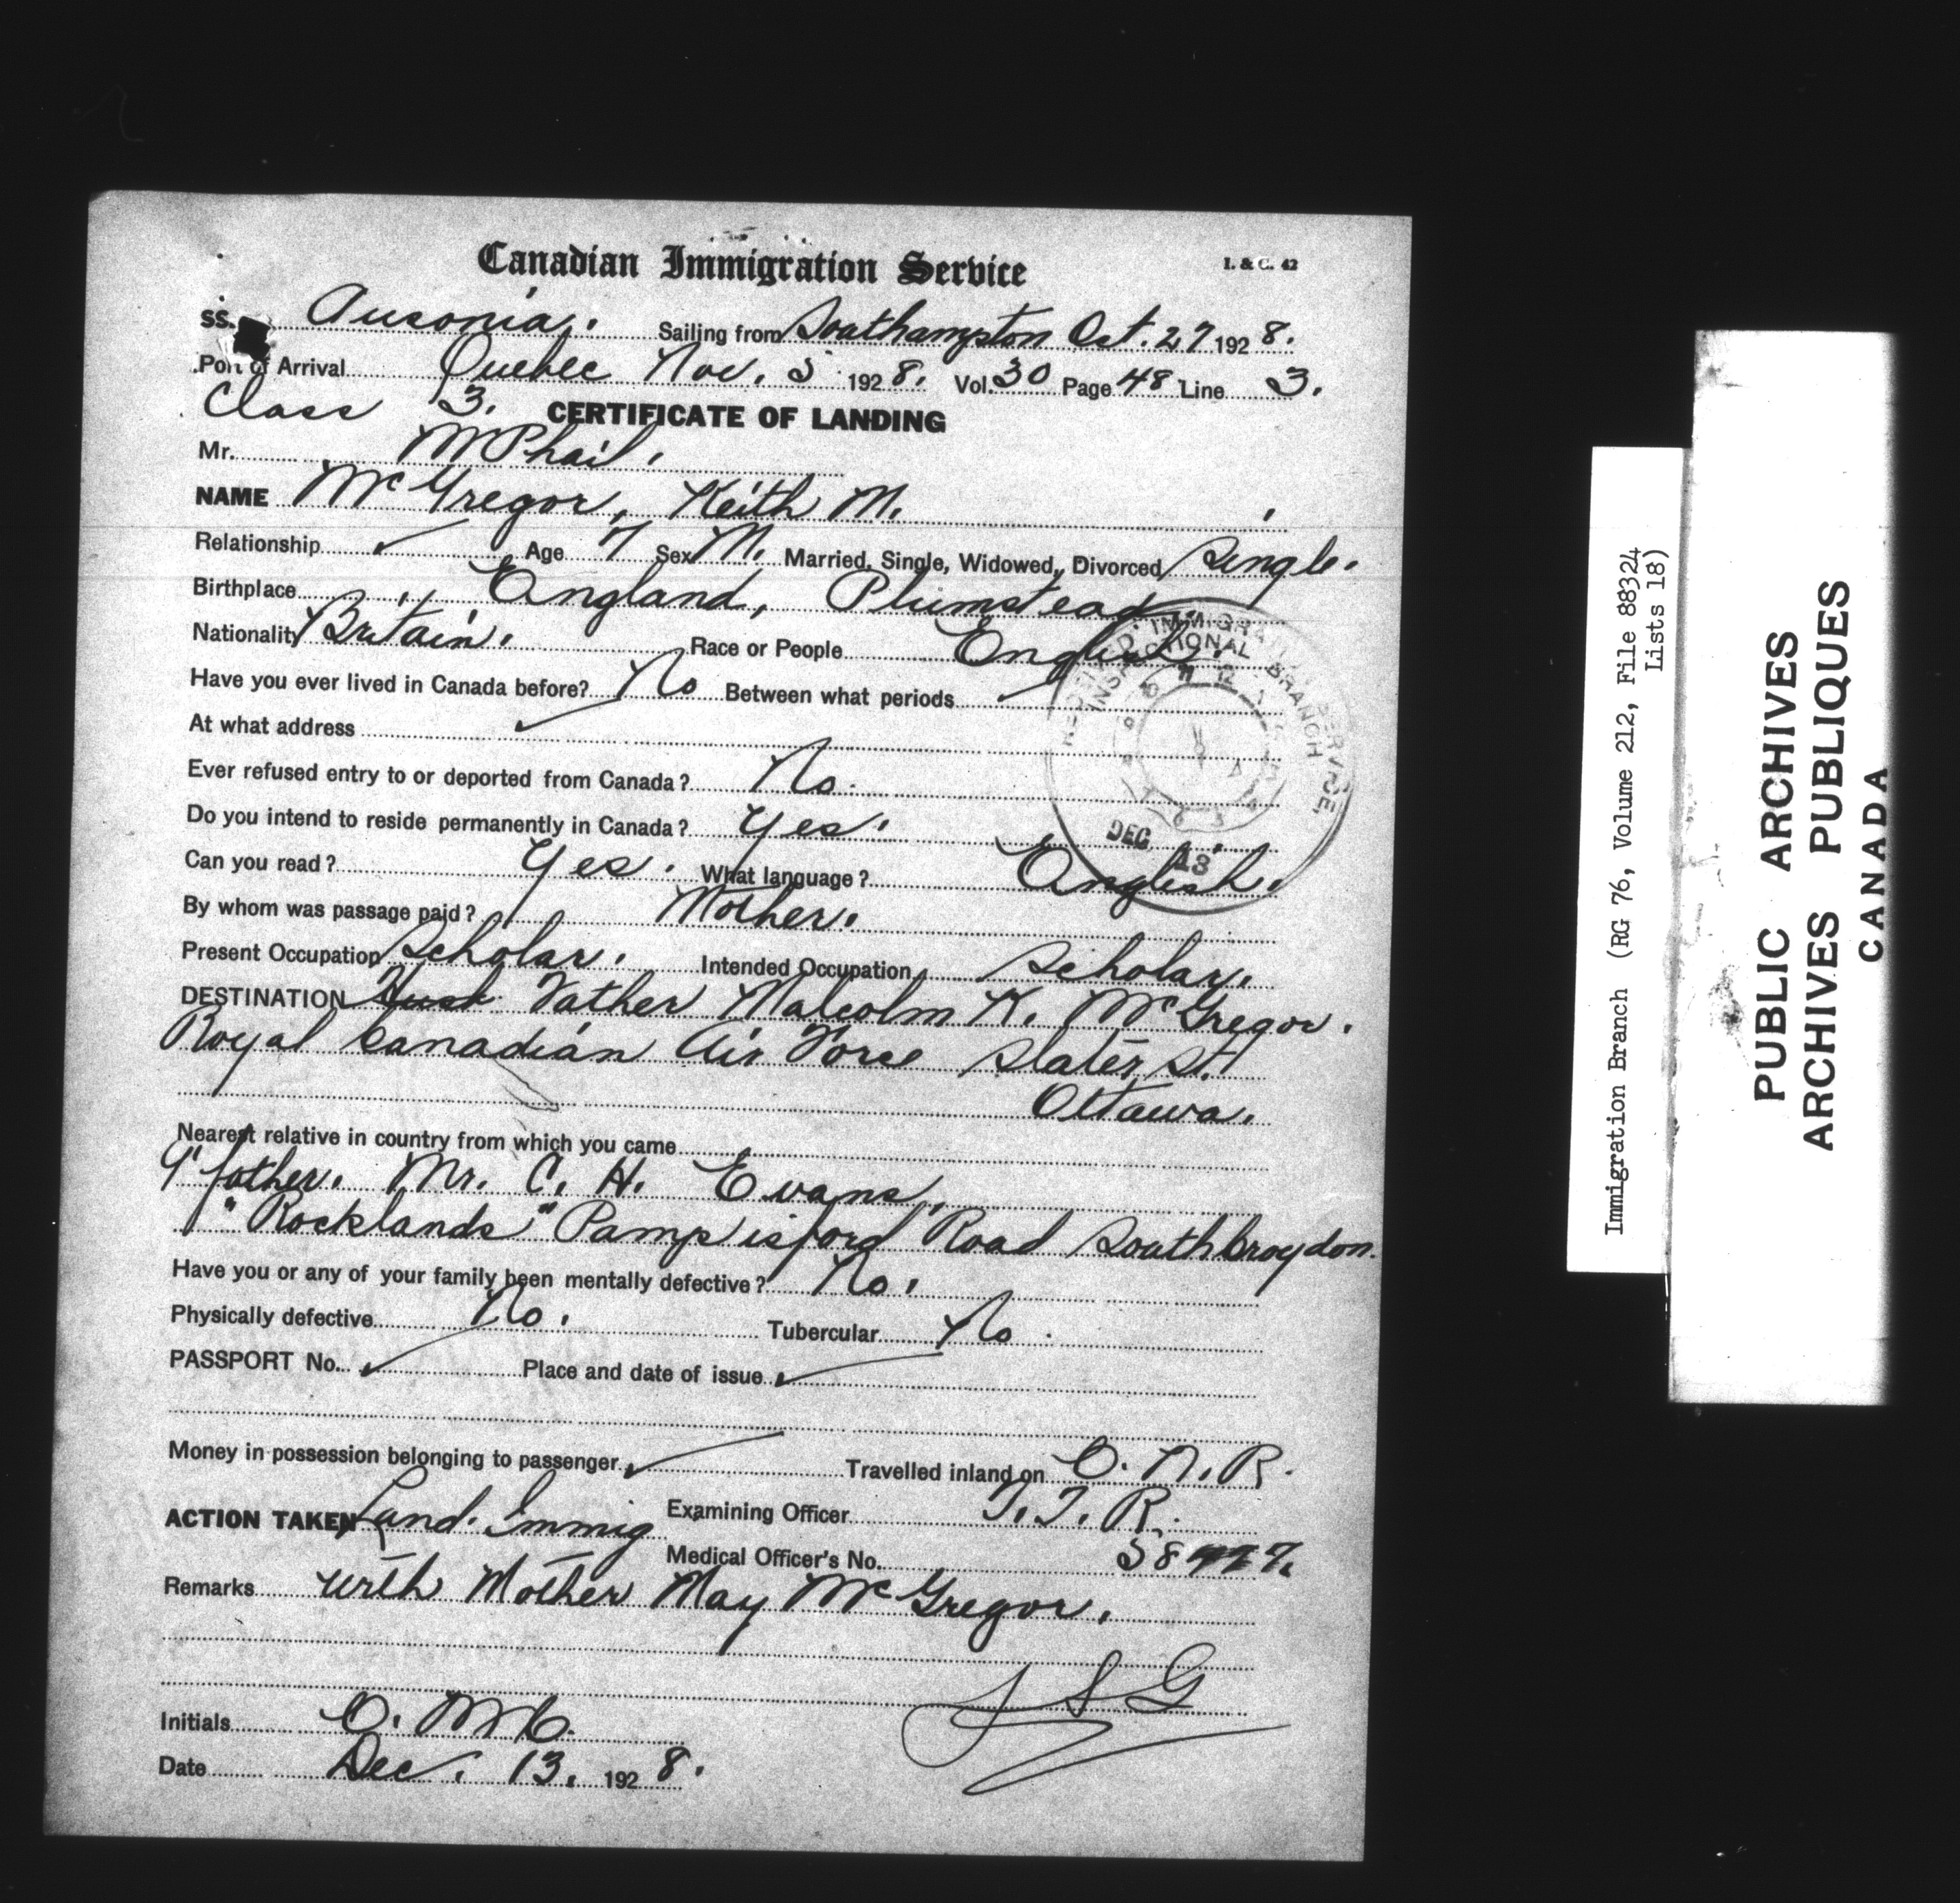 Canadian Immigration Service
I. & C. 42
SS. Ausonia. Sailing from Southampton Oct. 27 1928.
Port of Arrival Quebec Nov. 5 1928. Vol. 30 Page 48 Line 3.
Class 3.
CERTIFICATE OF LANDING
Mr. McPhail.
NAME McGregor, Keith M.
Relationship Age 7 Sex M. Married, Single, Widowed, Divorced Single.
Birthplace England, Plumstead
Nationality Britain. Race or People English.
Have you ever lived in Canada before? No Between what periods
At what address
Ever refused entry to or deported from Canada? No.
Do you intend to reside permanently in Canada? Yes.
Can you read? Yes. What language? English.
By whom was passage paid? Mother.
Present Occupation Scholar. Intended Occupation Scholar.
DESTINATION Husb Father Malcolm K. McGregor.
Royal Canadian Air Force Slater St.
Ottawa.
Nearest relative in country from which you came
G'father. Mr. C. H. Evans,
"Rocklands" Pampisford Road South Croydon.
Have you or any of your family been mentally defective? No.
Physically defective No. Tubercular No.
PASSPORT No. Place and date of issue
Money in possession belonging to passenger Travelled inland on C. N. R.
ACTION TAKEN Land. Immig Examining Officer T. T. R.
Medical Officer's No.
Remarks with Mother May McGregor.
Initials
Date Dec. 13. 1928.
IMMIGRATION SERVICE
BRANCH
DEC 13
Immigration Branch (RG 76, Volume 212, File 88324
Lists 18)
PUBLIC ARCHIVES
ARCHIVES PUBLIQUES
CANADA